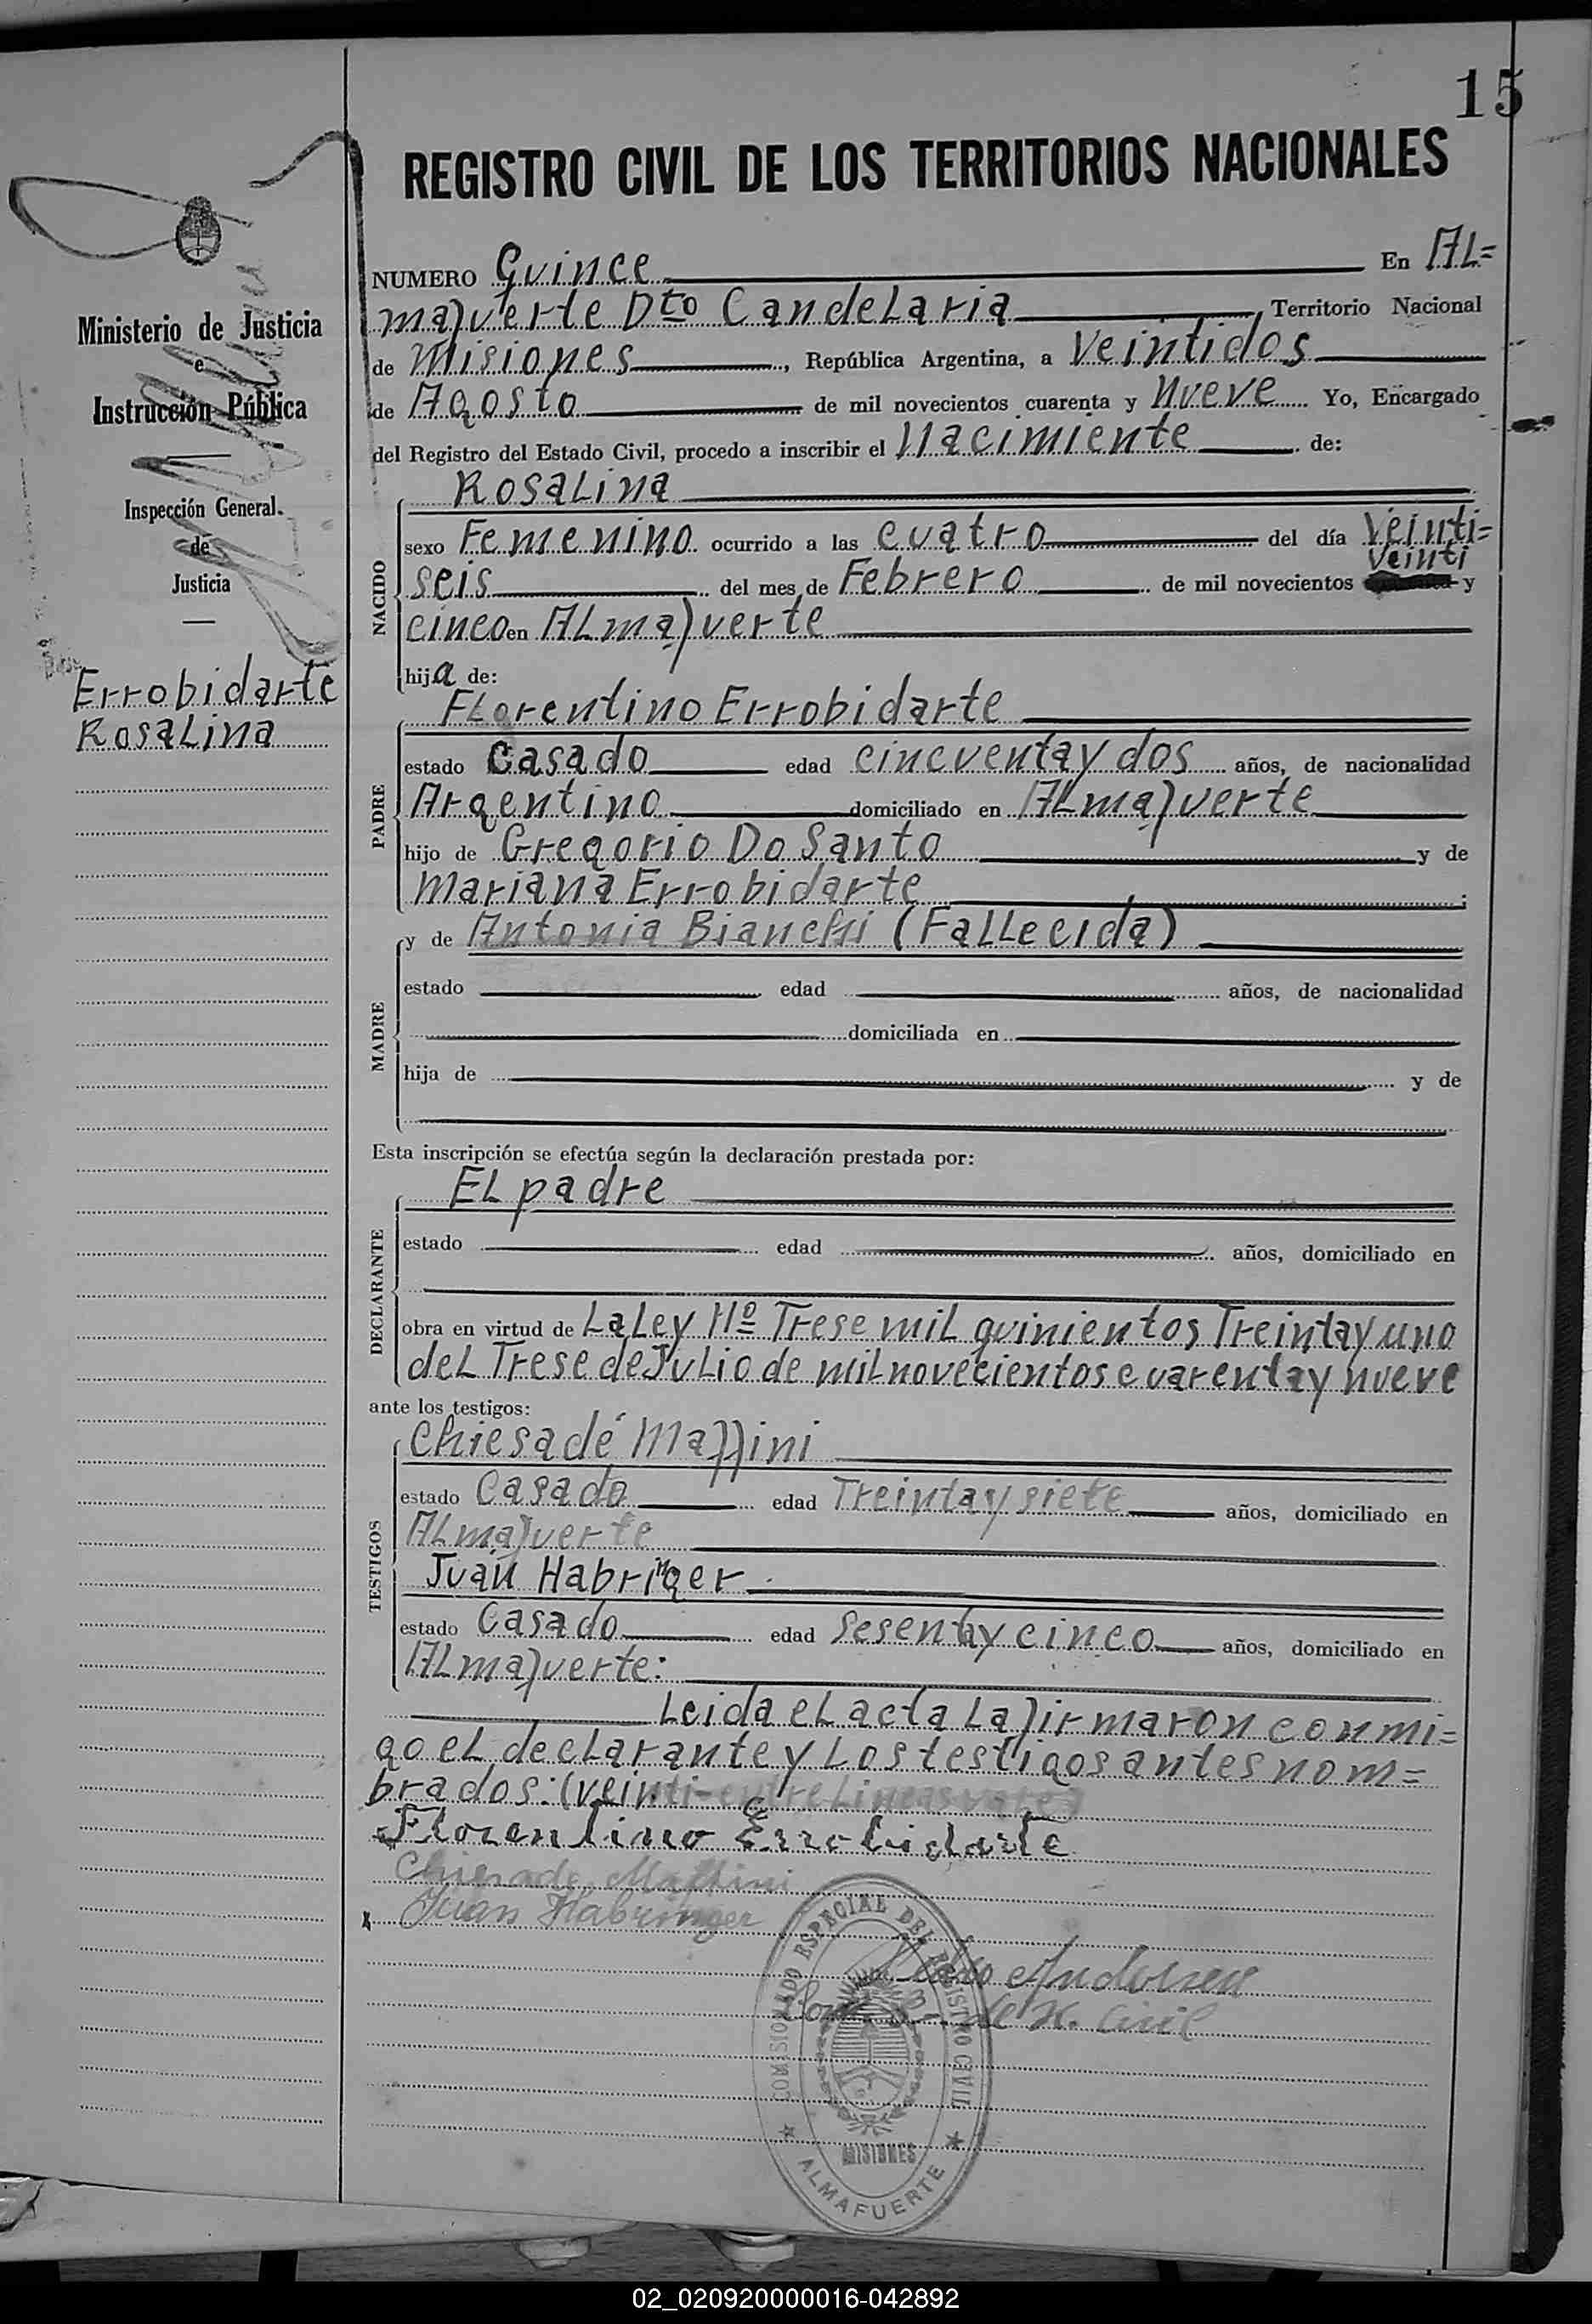 15
REGISTRO CIVIL DE LOS TERRITORIOS NACIONALES
Ministerio de Justicia
e
Instrucción Pública
Inspección General
de
Justicia
Errobidarte
Rosalina
NUMERO Quince En Al=
mafuerte Dto Candelaria, Territorio Nacional
de Misiones, República Argentina, a Veintidos
de Agosto de mil novecientos cuarenta y Nueve Yo, Encargado
del Registro del Estado Civil, procedo a inscribir el Nacimiente de:
NACIDO
Rosalina
sexo Femenino ocurrido a las cuatro del día Veinti=
Veinti
seis del mes de Febrero de mil novecientos y
cinco en Almafuerte
hija de:
PADRE
Florentino Errobidarte
estado Casado edad cincuenta y dos años, de nacionalidad
Argentino domiciliado en Almafuerte
hijo de Gregorio Do Santo y de
Mariana Errobidarte;
MADRE
y de Antonia Bianchi (Fallecida)
estado edad años, de nacionalidad
domiciliada en
hija de y de
Esta inscripción se efectúa según la declaración prestada por:
DECLARANTE
El padre
estado edad años, domiciliado en
obra en virtud de La Ley Nº Trese mil quinientos Treinta y uno
del Trese de Julio de mil novecientos cuarenta y nueve
ante los testigos:
TESTIGOS
Chiesa dé Maffini
estado Casado edad Treinta y siete años, domiciliado en
Almafuerte
Juan Habringer
estado Casado edad Sesenta y cinco años, domiciliado en
Almafuerte:
Leida el acta la firmaron conmi=
go el declarante y los testigos antes nom=
brados: (veinti-entre Lineas vale)
Florentino Errobidarte
Chiesa de Maffini
x Juan Habringer
Andersen
R. Civil
COMISIONADO ESPECIAL DEL REGISTRO CIVIL
MISIONES
ALMAFUERTE
02_020920000016-042892